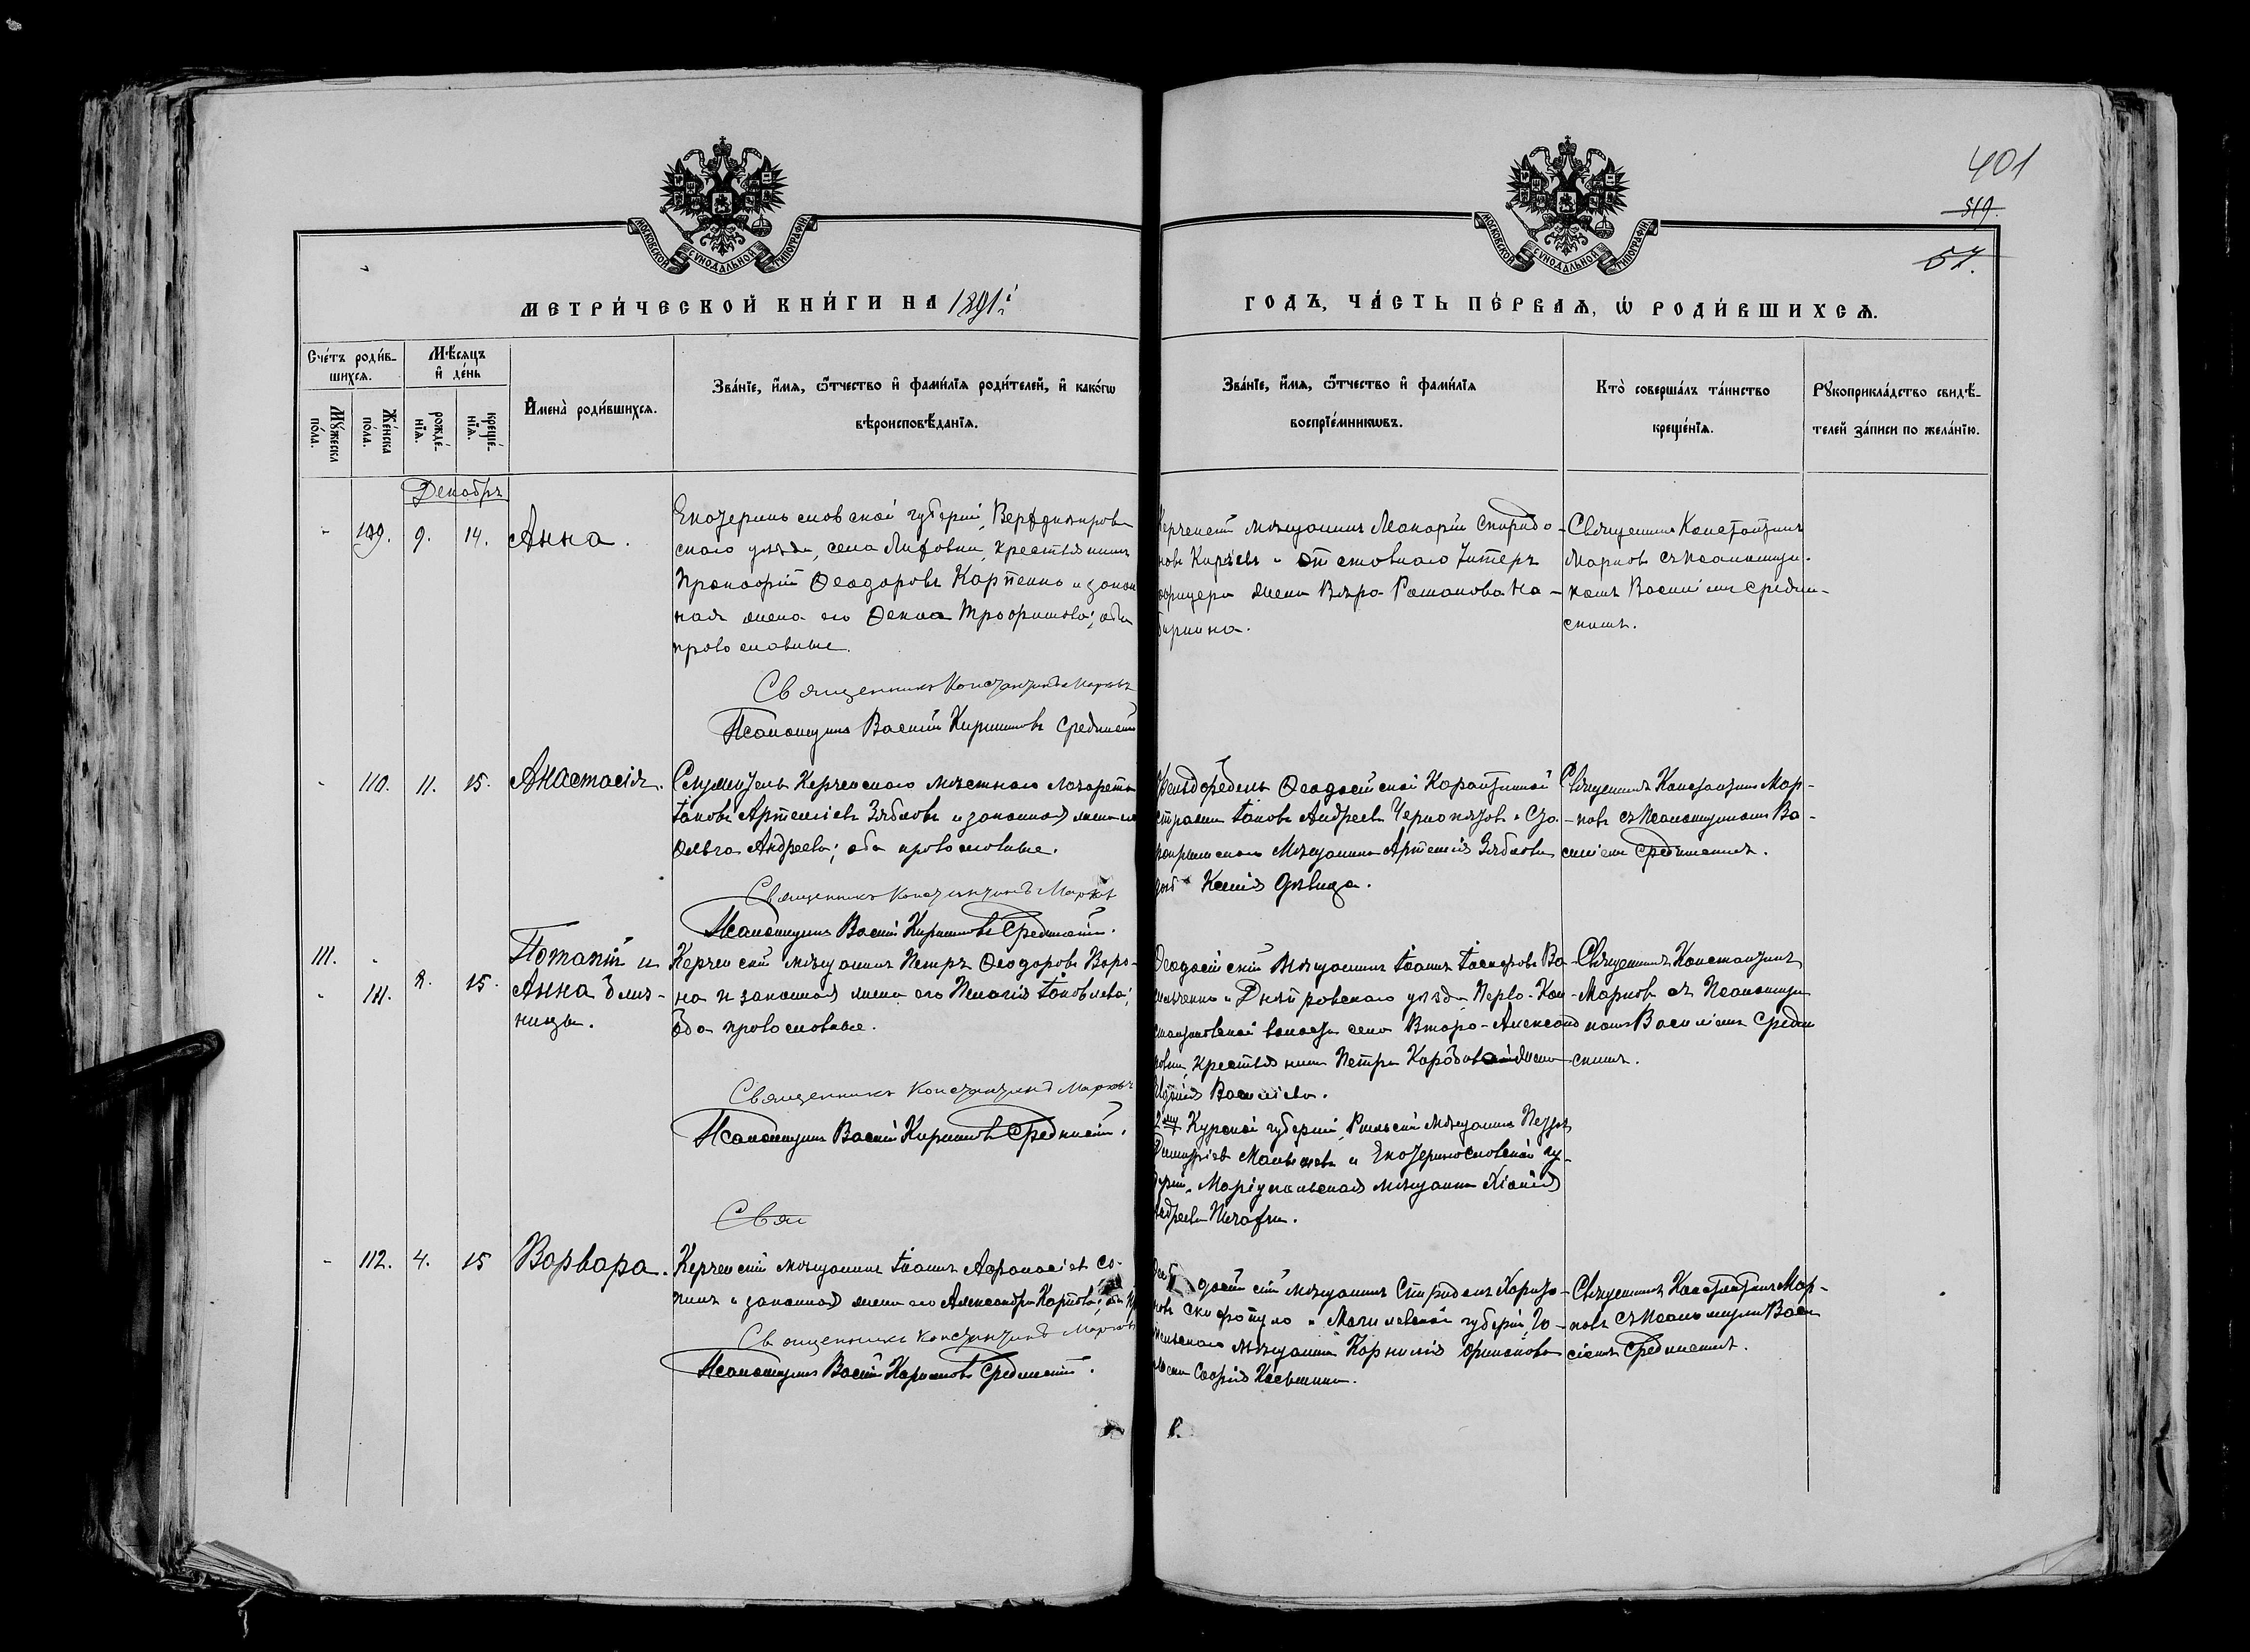 401
519.
57.
МОСКОВСКОЙ СѴНОДАЛЬНОЙ ТИПОГРАФІИ
МОСКОВСКОЙ СѴНОДАЛЬНОЙ ТИПОГРАФІИ
МЕТРИ́ЧЕСКОЙ КНИ́ГИ НА 1891й
ГОДЪ, ЧА́СТЬ ПЕ́РВАѦ, Ѡ РОДИ́ВШИХСѦ.
Сче́тъ роди́в-
шихсѧ.
Мѣ́сѧцъ
и де́нь
Мꙋ́жеска
по́ла.
Же́нска
по́ла.
рожде́-
нїѧ.
креще́-
нїѧ.
Имена̀ роди́вшихсѧ.
Зва́нїе, и́мѧ, ѻ́тчество и фами́лїѧ роди́телей, и како́гѡ
вѣроисповѣ́данїѧ.
Зва́нїе, и́мѧ, ѻ́тчество и фами́лїѧ
воспрїе́мникѡвъ.
Кто̀ соверша́лъ та́инство
креще́нїѧ.
Рꙋкоприкла́дство свидѣ́-
телей за́писи по жела́нїю.
Декабрь
- 109. 9. 14. Анна.
Екатеринославской губерніи, Бердянров-
скаго уѣзда, села крестьянинъ
Прокофій Ѳеодоровъ Карпенко и закон
ная жена его Ѳекла Трофимова; оба
православные.
Священникъ Константинъ Марковъ
Псаломщикъ Василій Кирилловъ Срединскій
Керченскій мѣщанинъ Макарій Спиридо-
новъ Кирѣевъ и отставнаго Унтеръ
офицера жена Вѣра Романова На-
Священникъ Константинъ
Марковъ съ псаломщи-
комъ Василіемъ Средин-
скимъ.
- 110. 11. 15. Анастасія.
Служитель Керченскаго мѣстнаго лазарета
Іаковъ Артеміевъ Зябловъ и законная жена его
Ольга Андреева; оба православные.
Священникъ Константинъ Марковъ
Псаломщикъ Василій Кирилловъ Срединскій.
Ѳеодосійской Карантинной
стражи Іаковъ Андреевъ и Ста-
рокрымскаго Мѣщанина Артемія Зяблова
Ксенія дѣвица.
Священникъ Константинъ Мар-
ковъ съ Псаломщикомъ Ва-
силіемъ Срединскимъ.
111. - 2. 15. Потапій и
- 111. Анна близ-
нецы.
Керченскій мѣщанинъ Петръ Ѳеодоровъ Воро-
на и законная жена его Пелагія Іаковлева;
оба православные.
Священникъ Константинъ Марковъ
Псаломщикъ Василій Кирилловъ Срединскій.
Свя
Ѳеодосійскій Мѣщанинъ Іоаннъ Ва-
и Днѣпровскаго уѣзда Перво-Кон-
стантиновской волости села Второ-Александ
ровки, крестьянина Петра жена
Василіева.
2му Курской губерніи, Рыльскій мѣщанинъ Петръ
Димитріевъ и Екатеринославской гу-
берніи, Маріупольская мѣщанка
Андреева
Священникъ Константинъ
Марковъ съ Псаломщи
комъ Василіемъ Средин
скимъ.
- 112. 4. 15 Варвара.
Керченскій мѣщанинъ Іоаннъ Афанасіевъ Со-
и законная жена его Александра Карпова; оба пр
Священникъ Константинъ Марковъ
Псаломщикъ Василій Кириловъ Срединскій.
Ѳеодосійскій мѣщанинъ Спиридонъ Харито-
новъ и Могилевской губерніи Го-
мельскаго мѣщанина Корнилія
жена Софія
Священникъ Константинъ Мар-
ковъ съ Псаломщикомъ Васи
ліемъ Срединскимъ.